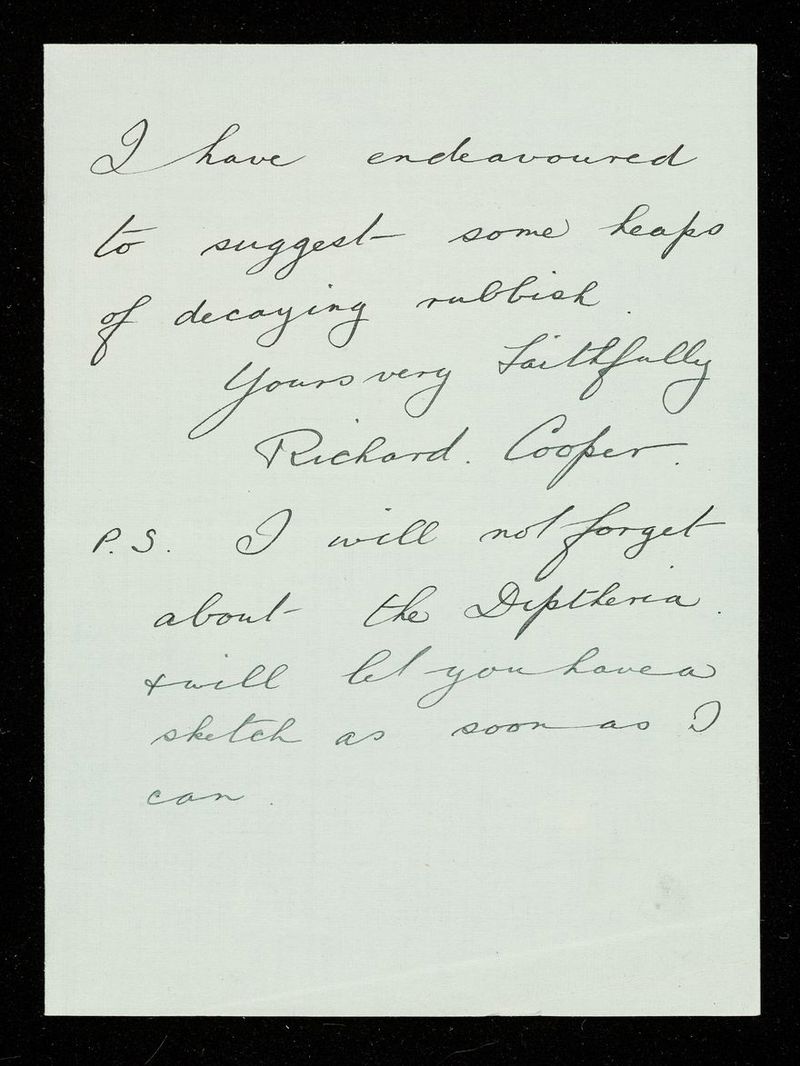 I have endeavoured
to suggest some heaps
of decaying rubbish.
Yours very Faithfully
Richard. Cooper.
P.S. I will not forget
about the Diptheria.
& will let you have a
sketch as soon as I
can.